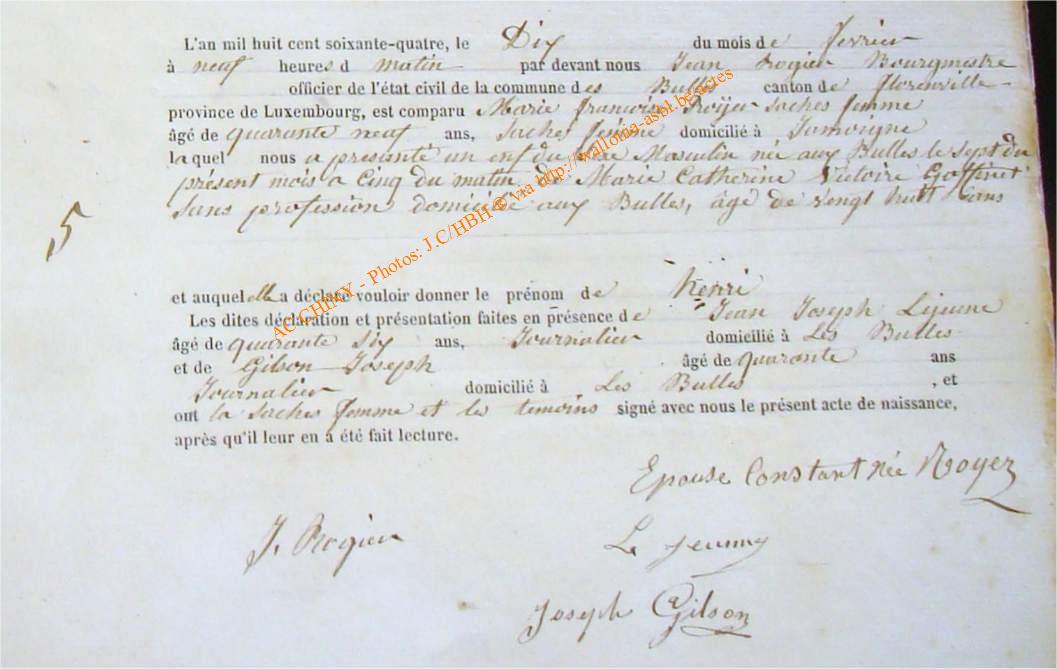 L'an mil huit cent soixante-quatre, le Dix du mois de fevrier
à neuf heures d matin par devant nous Jean Rogier Bourgmestre
officier de l'état civil de la commune des Bulles canton de florenville
province de Luxembourg, est comparu Marie francoise Royer Saches femme
âgé de quarante neuf ans, Saches femme domicilié à Jamoigne
laquel nous a presanté un enf du Masculin née aux Bulles le Sept du
présent mois a Cinq du matin de Marie Catherine Victoire Goffinet
Sans profession domiciliée aux Bulles, âgé de vengt huit ans
5
et auquel elle a déclaré vouloir donner le prénom de henri
Les dites déclaration et présentation faites en présence de Jean Joseph Lejeune
âgé de quarante Six ans, Journalier domicilié à Les Bulles
et de Gilson Joseph âgé de quarante ans
Journalier domicilié à Les Bulles , et
ont la Saches femme et les temoins signé avec nous le présent acte de naissance,
après qu'il leur en a été fait lecture.
Epouse Constant née Royer
J. Rogier
Le jeune
Joseph Gilson
AC CHINY - Photos: J.C/HBH © via http://wallonia-asbl.be/actes